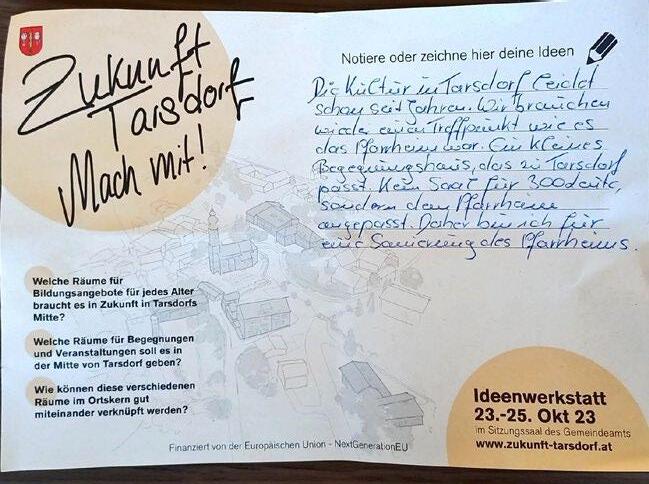 Zukunft
Tarsdorf
Mach mit!
Notiere oder zeichne hier deine Ideen
Die Kultur in Tarsdorf leidet
schon seit Jahren. Wir brauchen
wieder einen Treffpunkt wie es
das Pfarrheim war. Ein kleines
Begegnungshaus, das zu Tarsdorf
passt. Kein Saal für 300 Leute,
sondern dem Pfarrheim
angepasst. Daher bin ich für
eine Sanierung des Pfarrheims.
Welche Räume für
Bildungsangebote für jedes Alter
braucht es in Zukunft in Tarsdorfs
Mitte?
Welche Räume für Begegnungen
und Veranstaltungen soll es in
der Mitte von Tarsdorf geben?
Wie können diese verschiedenen
Räume im Ortskern gut
miteinander verknüpft werden?
Ideenwerkstatt
23.-25. Okt 23
im Sitzungssaal des Gemeindeamts
www.zukunft-tarsdorf.at
Finanziert von der Europäischen Union - NextGenerationEU